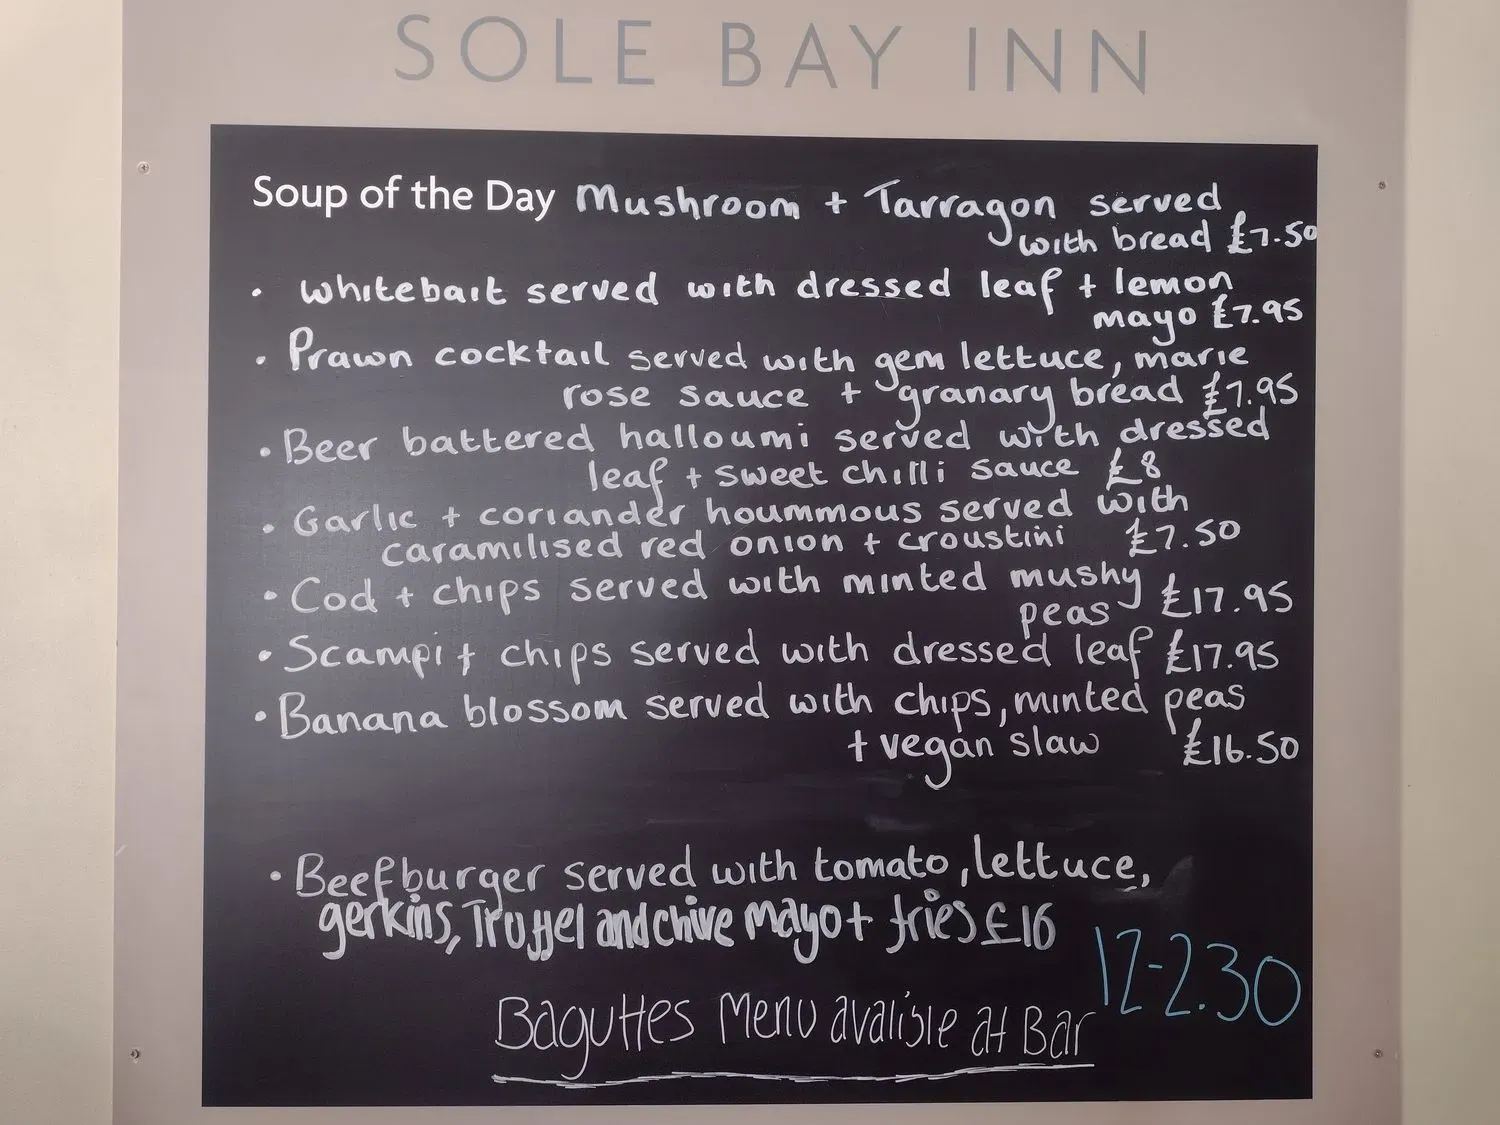 SOLE BAY INN
Soup of the Day Mushroom + Tarragon served
with bread £7.50
• Whitebait served with dressed leaf + lemon
mayo £7.95
• Prawn cocktail served with gem lettuce, marie
rose sauce + granary bread £7.95
• Beer battered halloumi served with dressed
leaf + sweet chilli sauce £8
• Garlic + coriander hoummous served with
caramilised red onion + croustini £7.50
• Cod + chips served with minted mushy
peas £17.95
• Scampi + chips served with dressed leaf £17.95
• Banana blossom served with chips, minted peas
+ vegan slaw £16.50
• Beefburger served with tomato, lettuce,
gerkins, Truffel and chive mayo + fries £16
12-2.30
Baguttes Menu avalible at Bar